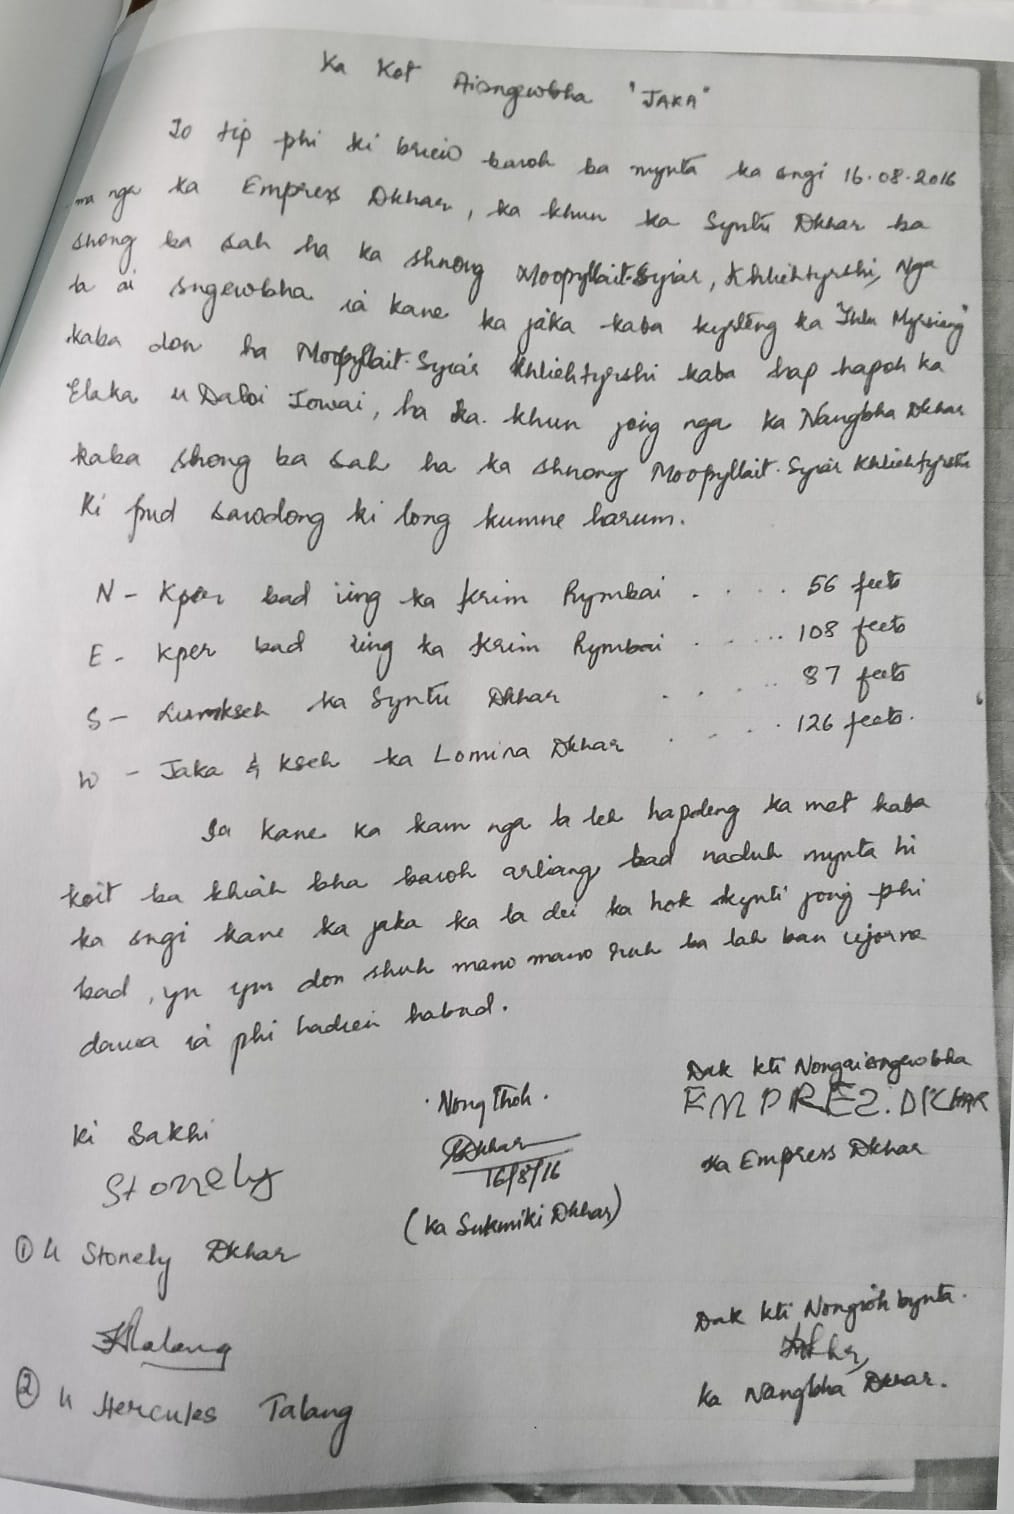 Ka Kot Aisngewbha "JAKA"
Io tip phi ki briew baroh ba mynta ka sngi 16.08.2016
ma nga ka Empress Dkhar, ka khun ka Syntu Dkhar ba
shong ba sah ha ka shnong Moopyllait-Syiar, Khliehtyrshi, Nga
la ai sngewbha ia kane ka jaka kaba kyrteng ka "Thlu Myrsiang"
kaba don ha Moopyllait-Syiar Khliehtyrshi kaba hap hapoh ka
Elaka u Daloi Jowai, ha ka khun jong nga ka Nangbha Dkhar
kaba shong ba sah ha ka shnong Moopyllait-Syiar Khliehtyrshi
Ki pud sawdong ki long kumne harum.
N - Kper bad iing ka Krim Rymbai .... 56 feets
E - Kper bad iing ka Krim Rymbai ..... 108 feets
S - Lumkseh ka Syntu Dkhar .... 87 feets
W - Jaka & Kseh ka Lomina Dkhar .... 126 feets.
Ia kane ka kam nga la leh hapdeng ka met kaba
koit ba khiah bha baroh arliang, bad naduh mynta hi
ka sngi kane ka jaka ka la dei ka hok skynti jong phi
bad, yn ym don shuh mano mano ruh ba lah ban ujorra
dawa ia phi hadien habud.
Dak kti Nongaisngewbha
EMPREZ.DKHAR
Ka Empress Dkhar
Nongthoh.
Dkhar
16/8/16
(Ka Sukmiki Dkhar)
Ki Sakhi
Stonely
① U Stonely Dkhar
HTalang
② U Hercules Talang
Dak kti Nongioh bynta.
Ka Nangbha Dkhar.